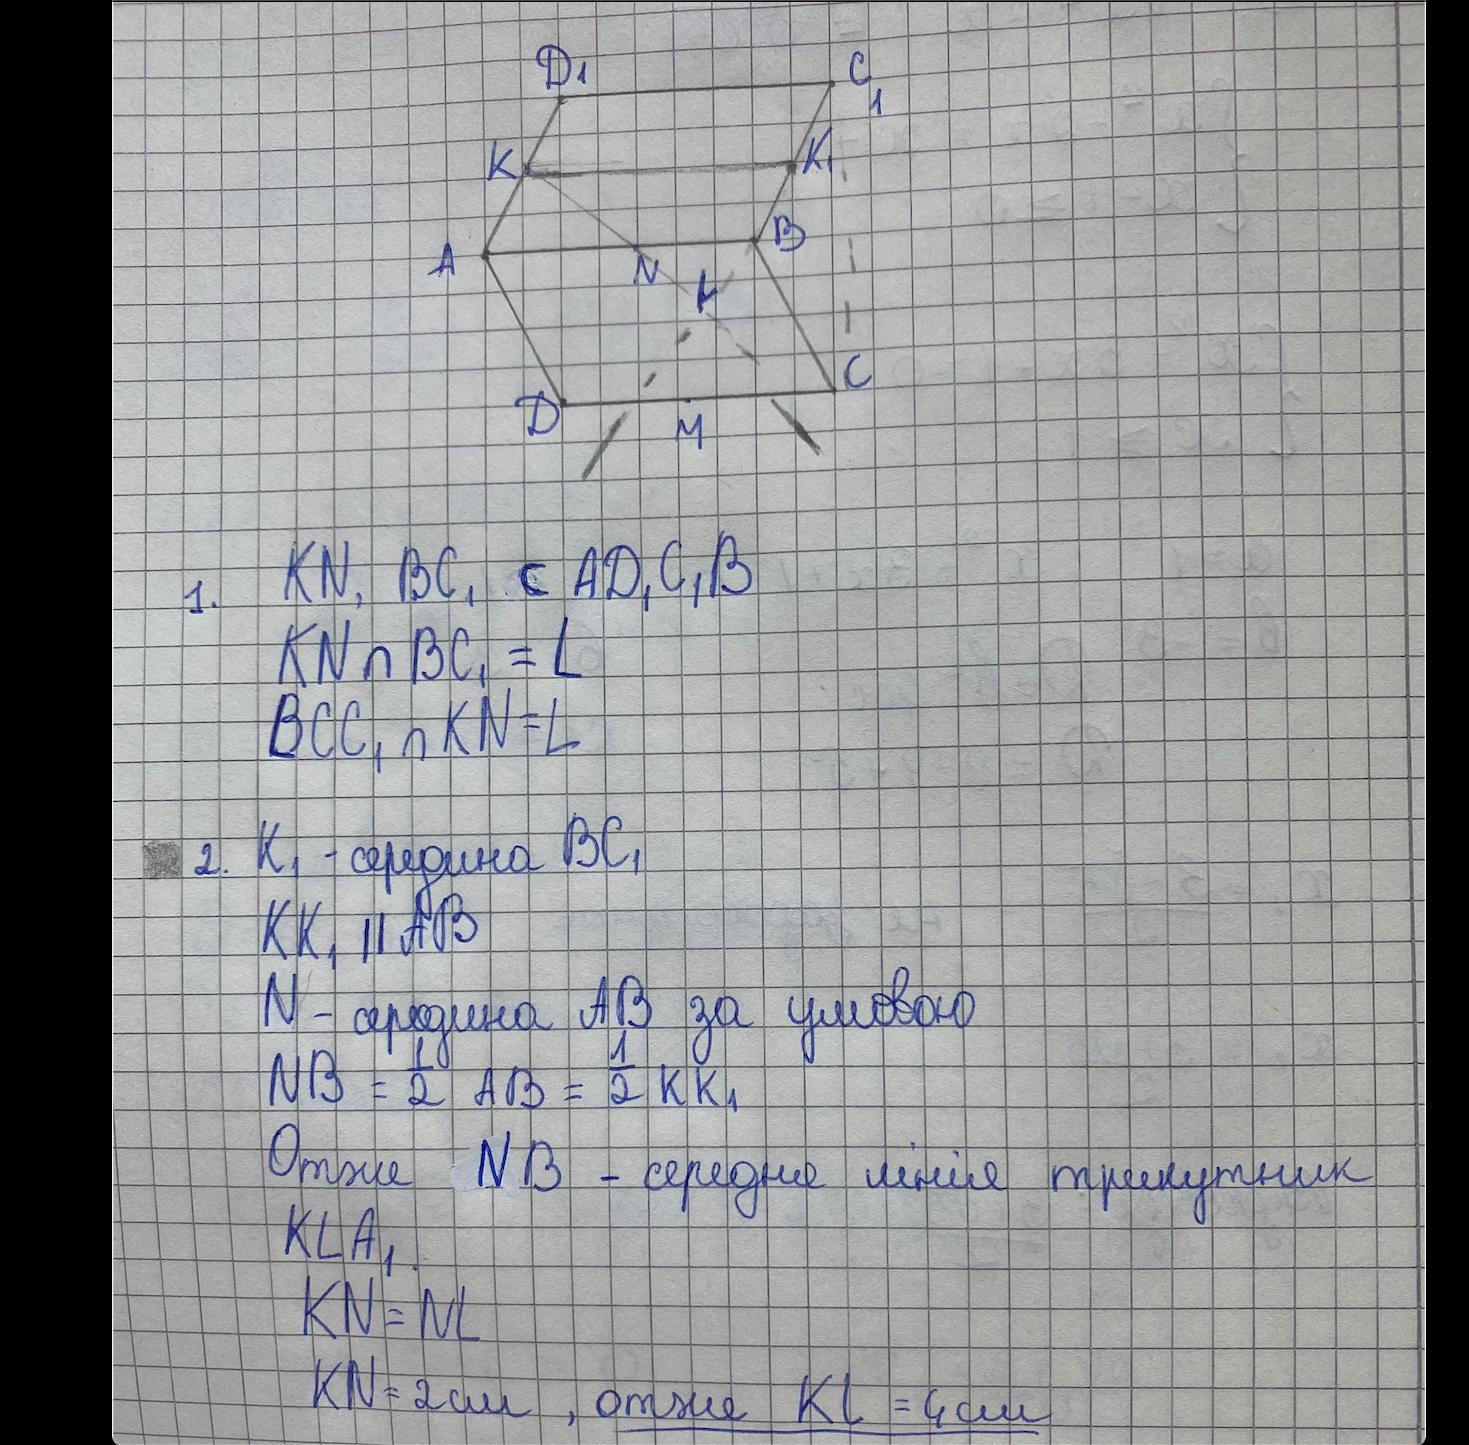 D₁
C₁
K
K₁
A
B
N
L
D
C
M
1. KN, BC₁ ⊂ AD₁C₁B
KN ∩ BC₁ = L
BCC₁ ∩ KN = L
2. K₁ - середина BC₁
KK₁ || AB
N - середина AB за умовою
NB = 1/2 AB = 1/2 KK₁
Отже NB - середня лінія трикутник
KLA₁.
KN = NL
KN = 2см, отже KL = 4см